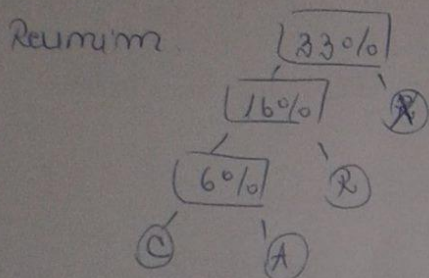 Reunim
33%
16%
R
6%
R
C
A